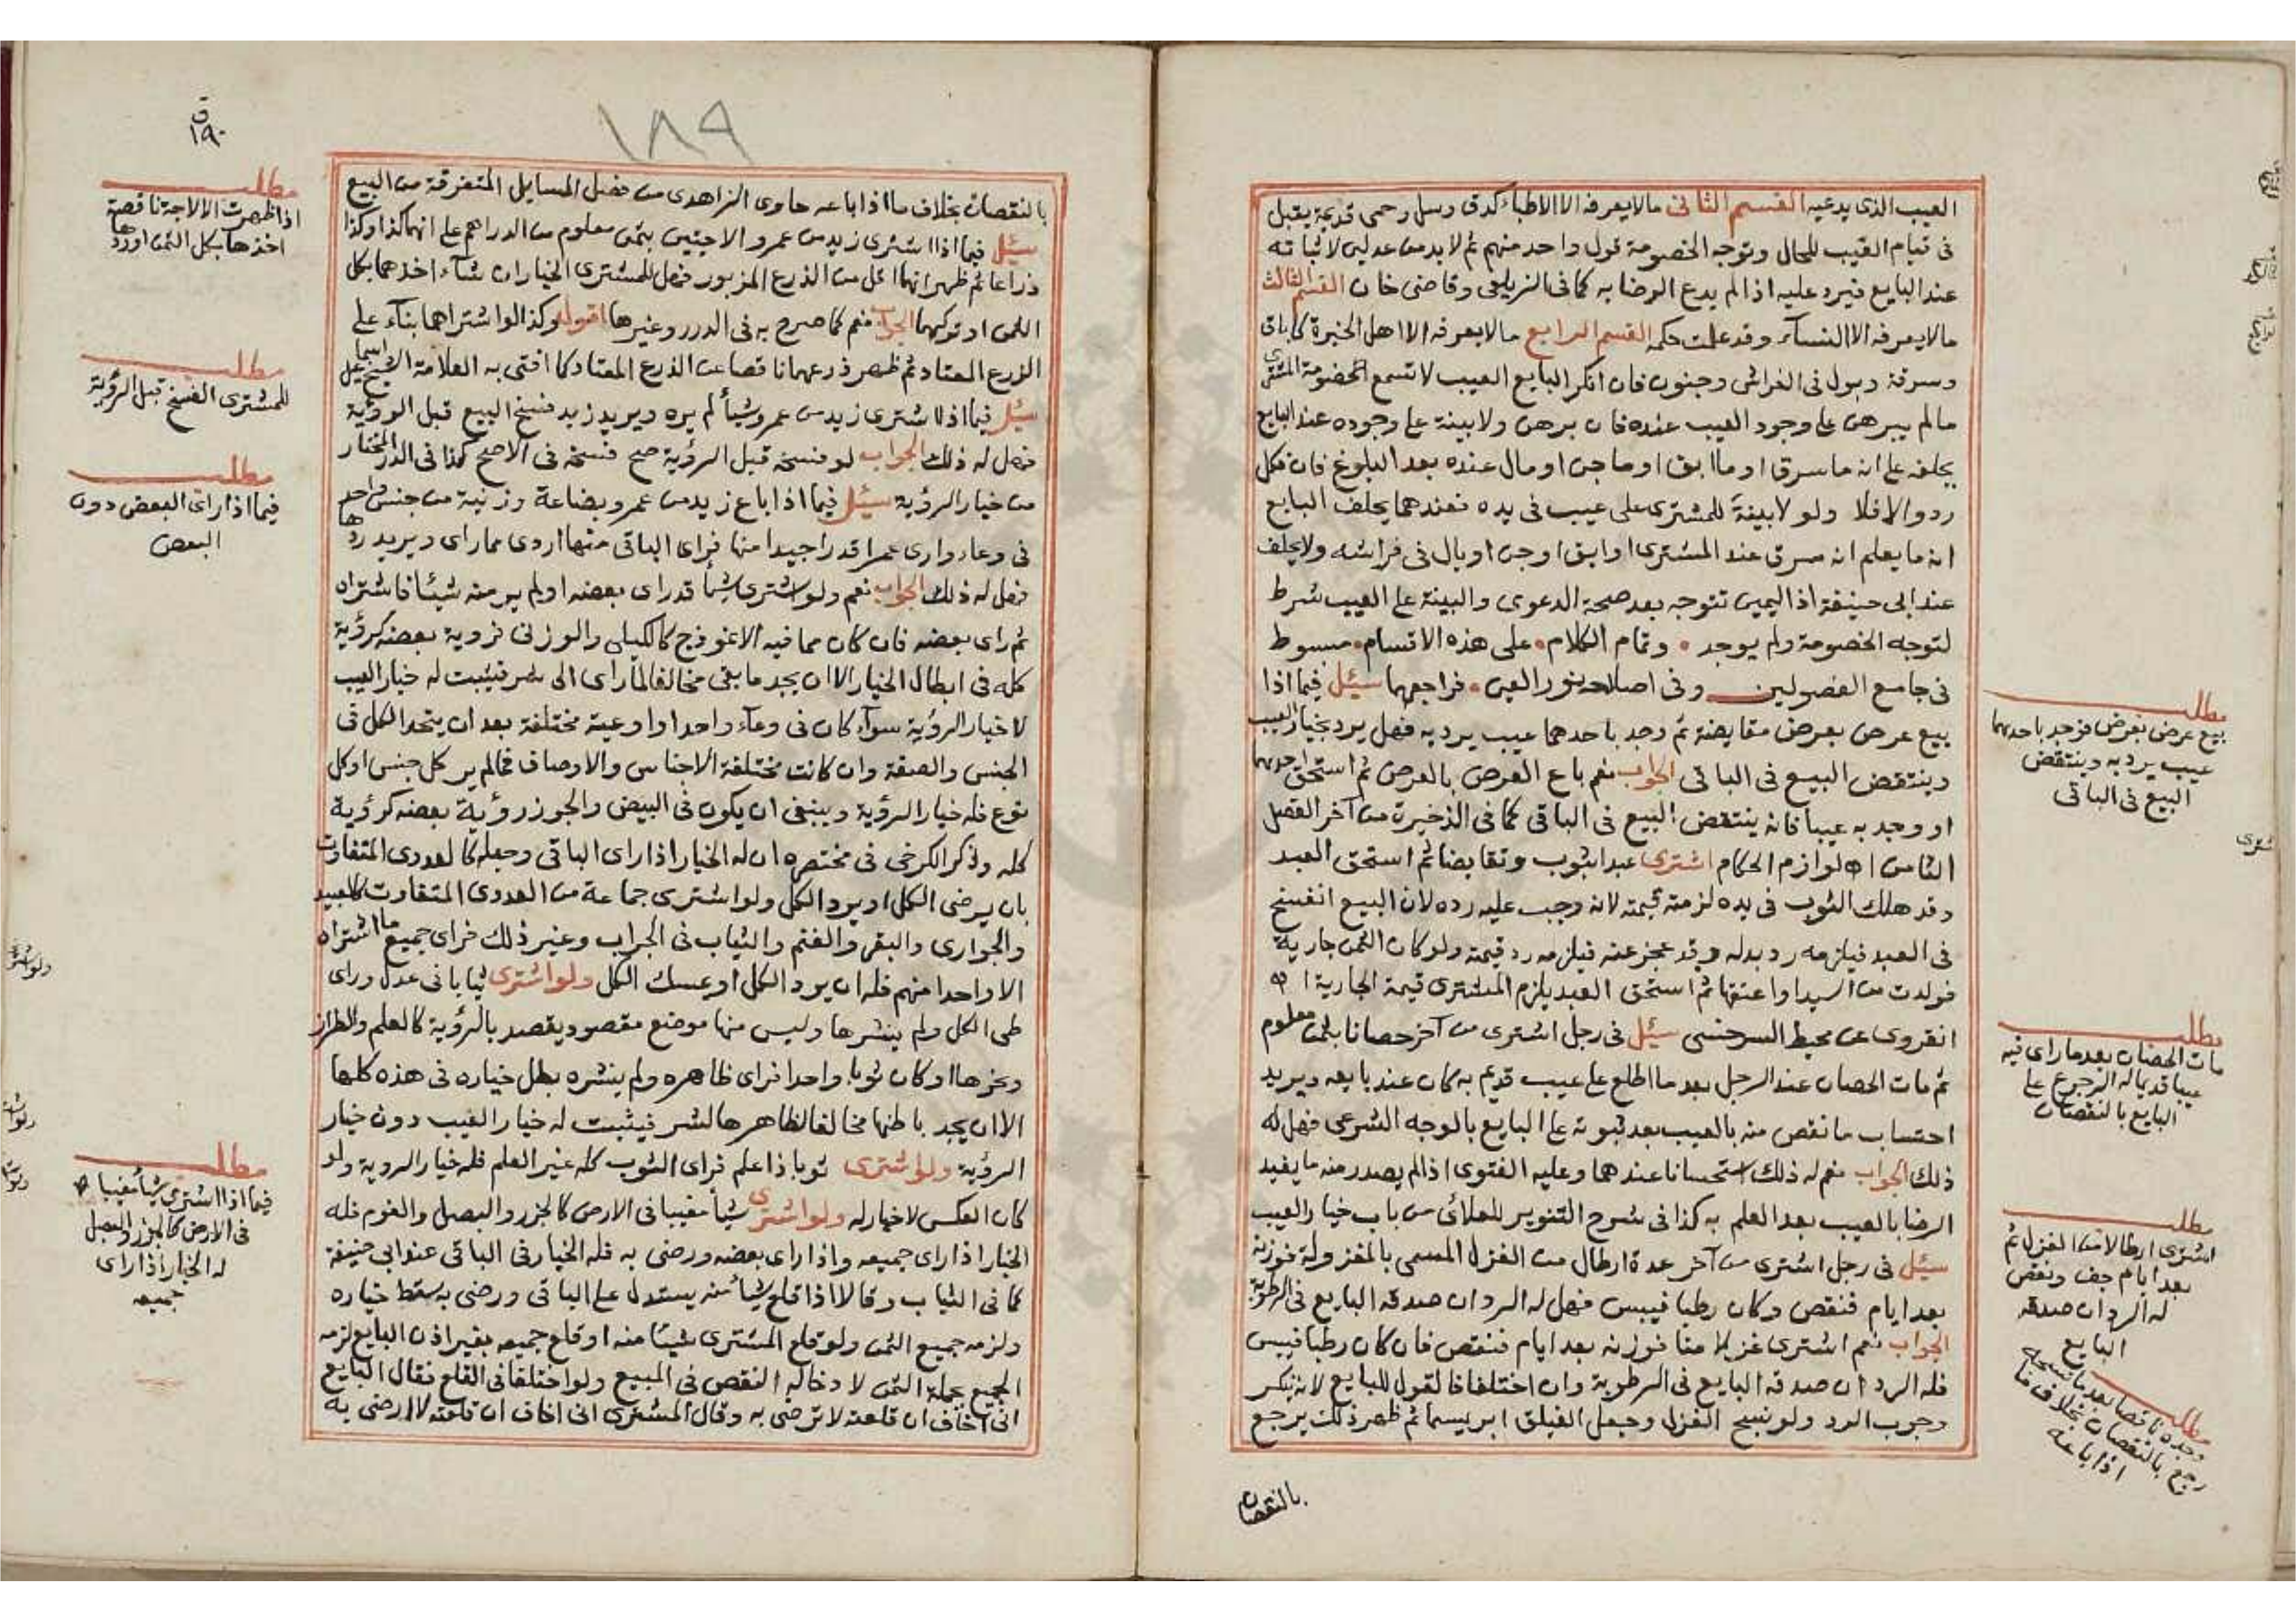 العيب الذى يدعيه القسم الثانى مالا يعرفه الا الاطباء كدق وسل وحمى قديمة يقبل
فى قيام العيب للحال وتوجه الخصومة قول واحد منهم ثم لابد من عدلين لاثباته
عند البايع فيرد عليه اذا لم يدع الرضا به كما فى الزيلعى وقاضى خان القسم الثالث
مالا يعرفه الا النسآء وقد علمت حكمه القسم الرابع مالا يعرفه الا اهل الخبرة كاباق
وسرقة وبول فى الفراش وجنون فان انكر البايع العيب لا تسمع خصومة المشترى
مالم يبرهن على وجود العيب عنده فان برهن ولا بينة على وجوده عند البايع
يحلفه على انه ما سرق او ما ابق او ما جن او مال عنده بعد البلوغ فان نكل
رد والا فلا ولو لا بينة للمشترى على عيب فى يده فعندهما يحلف البايع
انه ما يعلم انه سرق عند المشترى او ابق او جن او بال فى فراشه ولا يحلف
عند ابى حنيفة اذ اليمين تتوجه بعد صحة الدعوى والبينة على العيب شرط
لتوجه الخصومة ولم يوجد • وتمام الكلام • على هذه الاقسام • مبسوط
فى جامع الفصولين وفى اصلاحه نور العين • فراجعهما سئيل فيما اذا
بيع عرض بعرض مقايضة ثم وجد باحدهما عيب يرد به فهل يرد بخيار العيب
وينتقض البيع فى الباقى الجواب نعم باع العرض بالعرض ثم استحق احدهما
او وجد به عيبا فانه ينتقض البيع فى الباقى كما فى الذخيرة من آخر الفصل
الثامن اه لوازم الحكام اشترى عبدا بثوب وتقابضا ثم استحق العبد
وقد هلك الثوب فى يده لزمته قيمته لانه وجب عليه رده لان البيع انفسخ
فى العبد فيلزمه رد بدله وقد عجز عنه فيلزمه رد قيمته ولو كان الثمن جارية
فولدت من السيد او اعتقها ثم استحق العبد يلزم المشترى قيمة الجارية اه
انقروى عن محيط السرخسى سئيل فى رجل اشترى من آخر حصانا بثمن معلوم
ثم مات الحصان عند الرجل بعد ما اطلع على عيب قديم به كان عند بايعه ويريد
احتساب ما نقص منه بالعيب بعد ثبوته على البايع بالوجه الشرعى فهل له
ذلك الجواب نعم له ذلك استحسانا عندهما وعليه الفتوى اذا لم يصدر منه ما يفيد
الرضا بالعيب بعد العلم به كذا فى شرح التنوير للعلائى من باب خيار العيب
سئيل فى رجل اشترى من آخر عدة ارطال من الغزل المسمى بالمغزولة فوزنه
بعد ايام فنقص وكان رطبا فيبس فهل له الرد ان صدقه البايع فى الرطوبة
الجواب نعم اشترى غزلا منا فوزنه بعد ايام فنقص فان كان رطبا فيبس
فله الرد ان صدقه البايع فى الرطوبة وان اختلفا فالقول للبايع لانه ينكر
وجوب الرد ولو نسج الغزل وجعل الفيلق ابريسما ثم ظهر ذلك يرجع
بالنقصان
مطلب
بيع عرض بعرض فوجد باحدهما
عيب يرد به وينتقض
البيع فى الباقى
مطلب
مات الحصان بعد ما راى فيه
عيبا قديما له الرجوع على
البايع بالنقصان
مطلب
اشترى ارطالا من الغزل ثم
بعد ايام جف ونقص
له الرد ان صدقه
البايع
مطلب
وجده ناقصا بعد ما نسجه
رجع بالنقصان بخلاف ما
اذا باعه
١٨٩
ق
١٩٠
بالنقصان بخلاف ما اذا باعه حاوى الزاهدى من فصل المسايل المتفرقة من البيع
سئيل فيما اذا اشترى زيد من عمرو الاجتين بثمن معلوم من الدراهم على انهما كذا وكذا
ذراعا ثم ظهر انهما اقل من الذرع المزبور فهل للمشترى الخيار ان شآء اخذهما بكل
الثمن او تركهما الجواب نعم كما صرح به فى الدرر وغيرها اقول وكذا لو اشتراهما بنآء على
الذرع المعتاد ثم ظهر ذرعهما ناقصا عن الذرع المعتاد كما افتى به العلامة الشيخ اسماعيل
سئيل فيما اذا اشترى زيد من عمرو شيأ لم يره ويريد زيد فسخ البيع قبل الرؤية
فهل له ذلك الجواب لو فسخه قبل الرؤية صح فسخه فى الاصح كذا فى الدر المختار
من خيار الرؤية سئيل فيما اذا باع زيد من عمرو بضاعة وزنية من جنس واحد
فى وعاء وارى عمرا قدرا جيدا منها فراى الباقى منها اردى مما راى ويريد ردها
فهل له ذلك الجواب نعم ولو اشترى شيأ قد راى بعضه او لم ير منه شيئا فاشتراه
ثم راى بعضه فان كان مما فيه الانموذج كالكيلى والوزنى فروية بعضه كرؤية
كله فى ابطال الخيار الا ان يجد ما بقى مخالفا لما راى الى شر فيثبت له خيار العيب
لا خيار الرؤية سوآء كان فى وعآء واحد او اوعية مختلفة بعد ان يتحد الكل فى
الجنس والصفة وان كانت مختلفة الاجناس والاوصاف فمالم ير كل جنس او كل
نوع فله خيار الرؤية وينبغى ان يكون فى البيض والجوز رؤية بعضه كرؤية
كله وذكر الكرخى فى مختصره ان له الخيار اذا راى الباقى وجعله كالعددى المتفاوت
بان يرضى الكل او يرد الكل ولو اشترى جماعة من العددى المتفاوت كالعبيد
والجوارى والبقر والغنم والثياب فى الجراب وغير ذلك فراى جميع ما اشتراه
الا واحدا منهم فله ان يرد الكل او يمسك الكل ولو اشترى ثيابا فى عدل وراى
طى الكل ولم ينشرها وليس منها موضع مقصود يقصد بالرؤية كالعلم والطراز
ونحوها او كان ثوبا واحدا فراى ظاهره ولم ينشره بطل خياره فى هذه كلها
الا ان يجد باطنها مخالفا لظاهرها لشر فيثبت له خيار العيب دون خيار
الرؤية ولو اشترى ثوبا ذا علم فراى الثوب كله غير العلم فله خيار الروية ولو
كان العكس لا خيار له ولو اشترى شيأ مغيبا فى الارض كالجزر والبصل والثوم فله
الخيار اذا راى جميعه واذا راى بعضه ورضى به فله الخيار فى الباقى عند ابى حنيفة
كما فى الثياب وقالا اذا قلع شيأ منه يستدل على الباقى ورضى به سقط خياره
ولزمه جميع الثمن ولو قلع المشترى شيئا منه او قلع جميعه بغير اذن البايع لزمه
الجميع بجملة الثمن لادخاله النقص فى المبيع ولو اختلفا فى القلع فقال البايع
انى اخاف ان قلعته لا ترضى به وقال المشترى انى اخاف ان قلعته لا ارضى به
مطلب
اذا ظهرت الالاجة ناقصة
اخذها بكل الثمن او ردها
مطلب
للمشترى الفسخ قبل الرؤية
مطلب
فيما اذا راى البعض دون
البعض
مطلب
فيما اذا اشترى شيأ مغيبا
فى الارض كالجزر والبصل
له الخيار اذا راى
جميعه